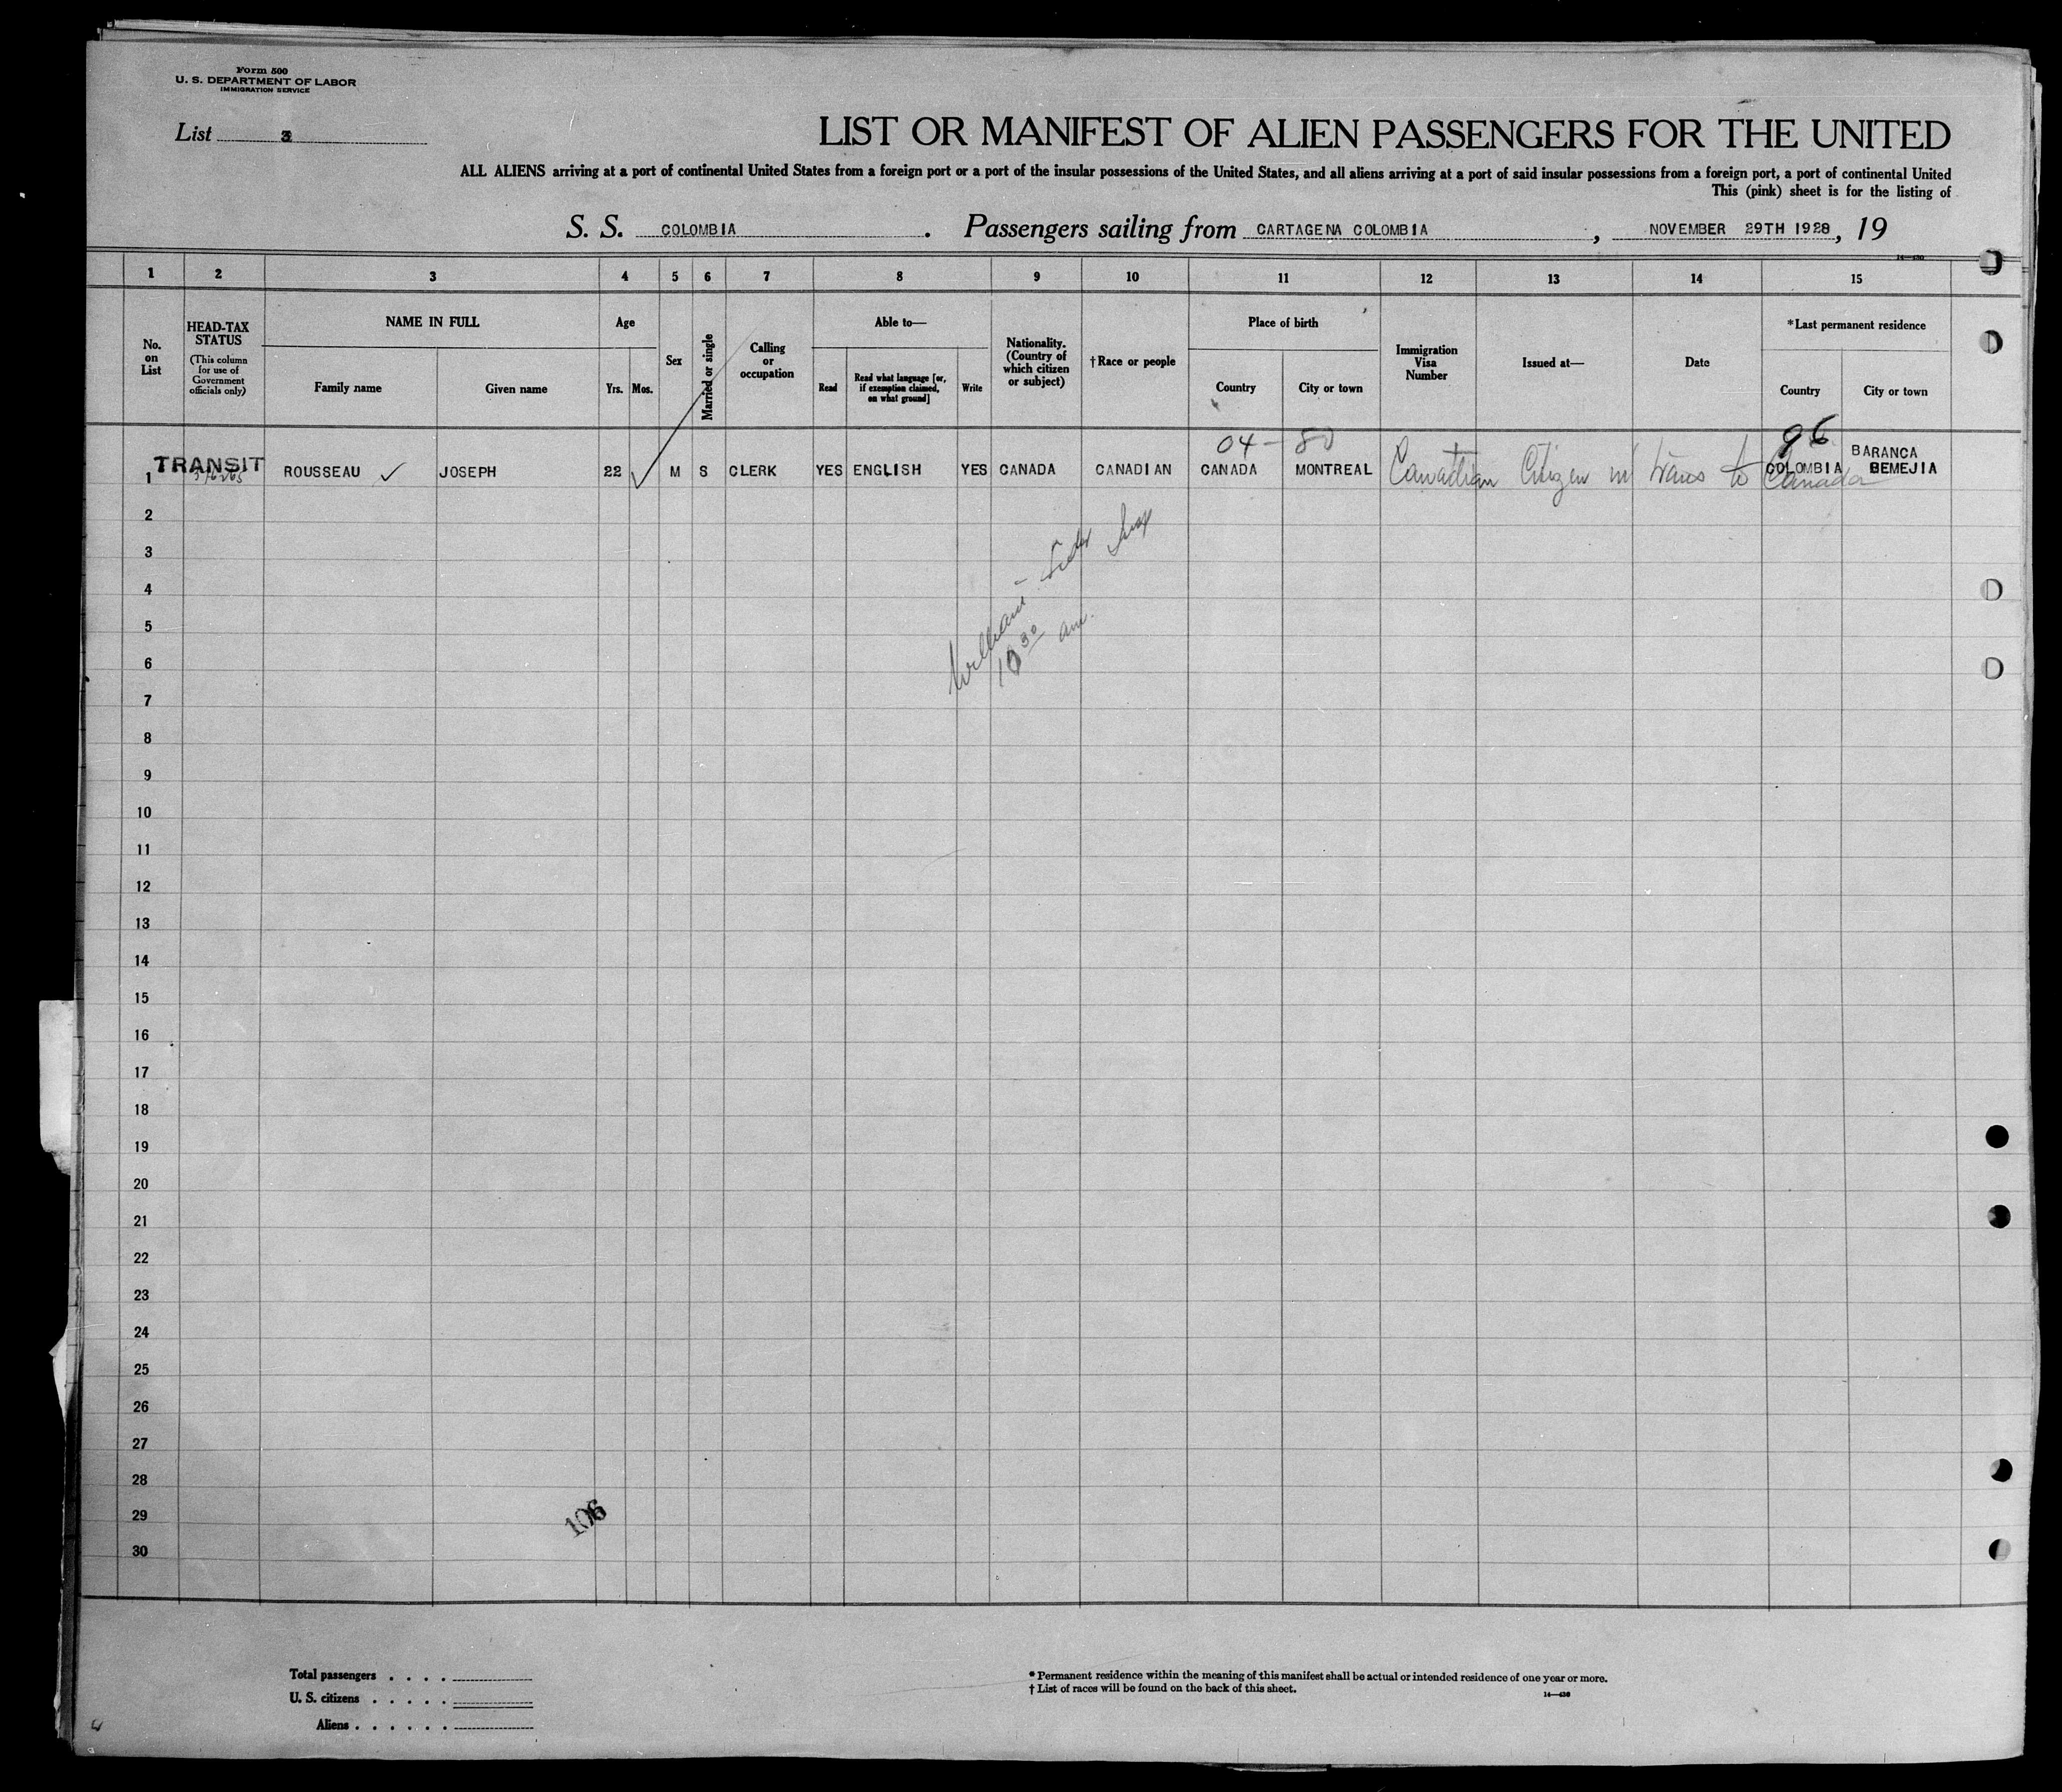 Form 500
U. S. DEPARTMENT OF LABOR
IMMIGRATION SERVICE
List 3
LIST OR MANIFEST OF ALIEN PASSENGERS FOR THE UNITED
ALL ALIENS arriving at a port of continental United States from a foreign port or a port of the insular possessions of the United States, and all aliens arriving at a port of said insular possessions from a foreign port, a port of continental United
This (pink) sheet is for the listing of
S. S. COLOMBIA . Passengers sailing from CARTAGENA COLOMBIA , NOVEMBER 29TH 1928 , 19
14—430
1 2 3 4 5 6 7 8 9 10 11 12 13 14 15
No. on List
HEAD-TAX STATUS
(This column for use of Government officials only)
NAME IN FULL
Family name
Given name
Age
Yrs. Mos.
Sex
Married or single
Calling or occupation
Able to—
Read
Read what language [or, if exemption claimed, on what ground]
Write
Nationality. (Country of which citizen or subject)
†Race or people
Place of birth
Country
City or town
Immigration Visa Number
Issued at—
Date
*Last permanent residence
Country
City or town
04 – 80 96
1 TRANSIT ROUSSEAU ✓ JOSEPH 22 M S CLERK YES ENGLISH YES CANADA CANADIAN CANADA MONTREAL Canadian Citizen in trans to Canada COLOMBIA BARANCA BEMEJIA
2
3
4
5
6
7
8
9
10
11
12
13
14
15
16
17
18
19
20
21
22
23
24
25
26
27
28
29
30
10 30 am.
106
Total passengers . . . .
U. S. citizens . . . . .
Aliens . . . . . .
* Permanent residence within the meaning of this manifest shall be actual or intended residence of one year or more.
† List of races will be found on the back of this sheet.
14—430